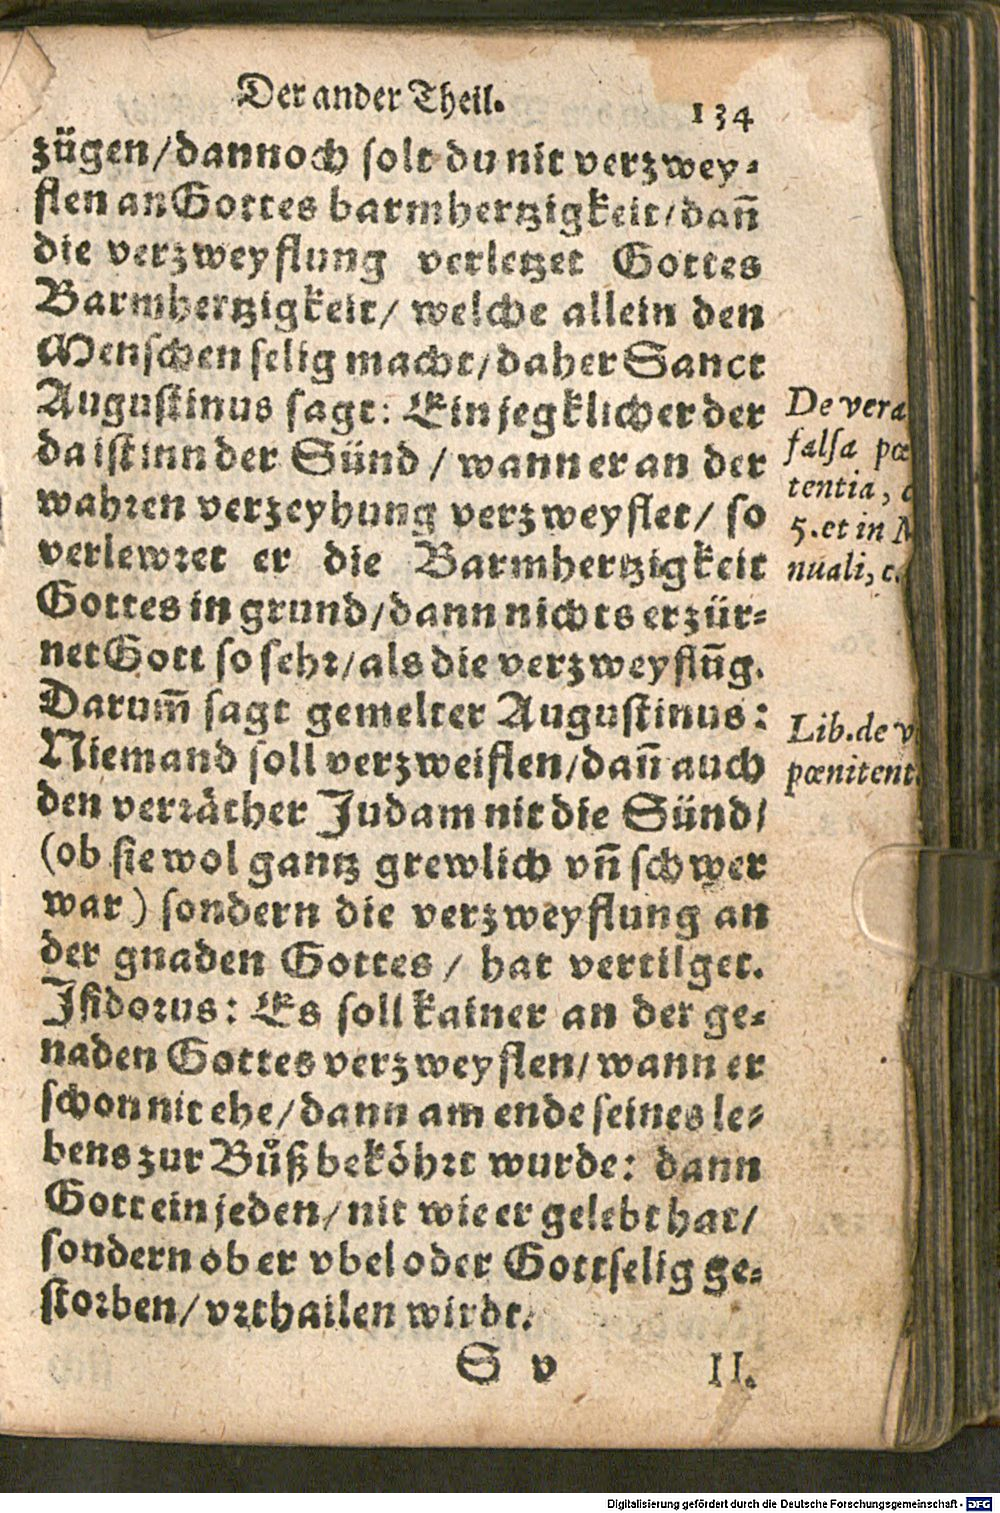 Der ander Theil.
134
zügen/dannoch solt du nit verzwey⸗
flen an Gottes barmhertzigkeit/dañ
die verzweyflung verletzet Gottes
Barmhertzigkeit/ welche allein den
Menschen selig macht/daher Sanct
Augustinus sagt: Ein jegklicher der
da ist inn der Sünd / wann er an der
wahren verzeyhung verzweyflet/ so
verlewret er die Barmhertzigkeit
Gottes in grund/dann nichts erzür⸗
net Gott so sehr/als die verzweyflũg.
Darum̃ sagt gemelter Augustinus:
Niemand soll verzweiflen/dañ auch
den verräther Judam nit die Sünd/
(ob sie wol gantz grewlich vñ schwer
war) sondern die verzweyflung an
der gnaden Gottes / hat vertilget.
Isidorus: Es soll kainer an der ge⸗
naden Gottes verzweyflen/wann er
schon nit ehe/dann am ende seines le⸗
bens zur Bůß beköhrt wurde: dann
Gott ein jeden/nit wie er gelebt hat/
sondern ob er vbel oder Gottselig ge⸗
storben/vrthailen wirdt.
S v
II.
De vera
falsa pœ
tentia, c
5. et in M
nuali, c.
Lib. de v
pœnitent.
Digitalisierung gefördert durch die Deutsche Forschungsgemeinschaft - DFG